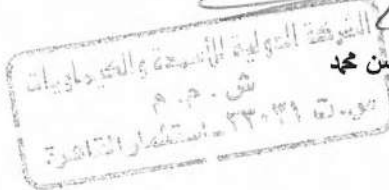 سن محمد
الشركة الدولية للأسمدة والكيماويات
ش . م . م
س.ت ٢٣٠٣٩ - استثمار القاهرة